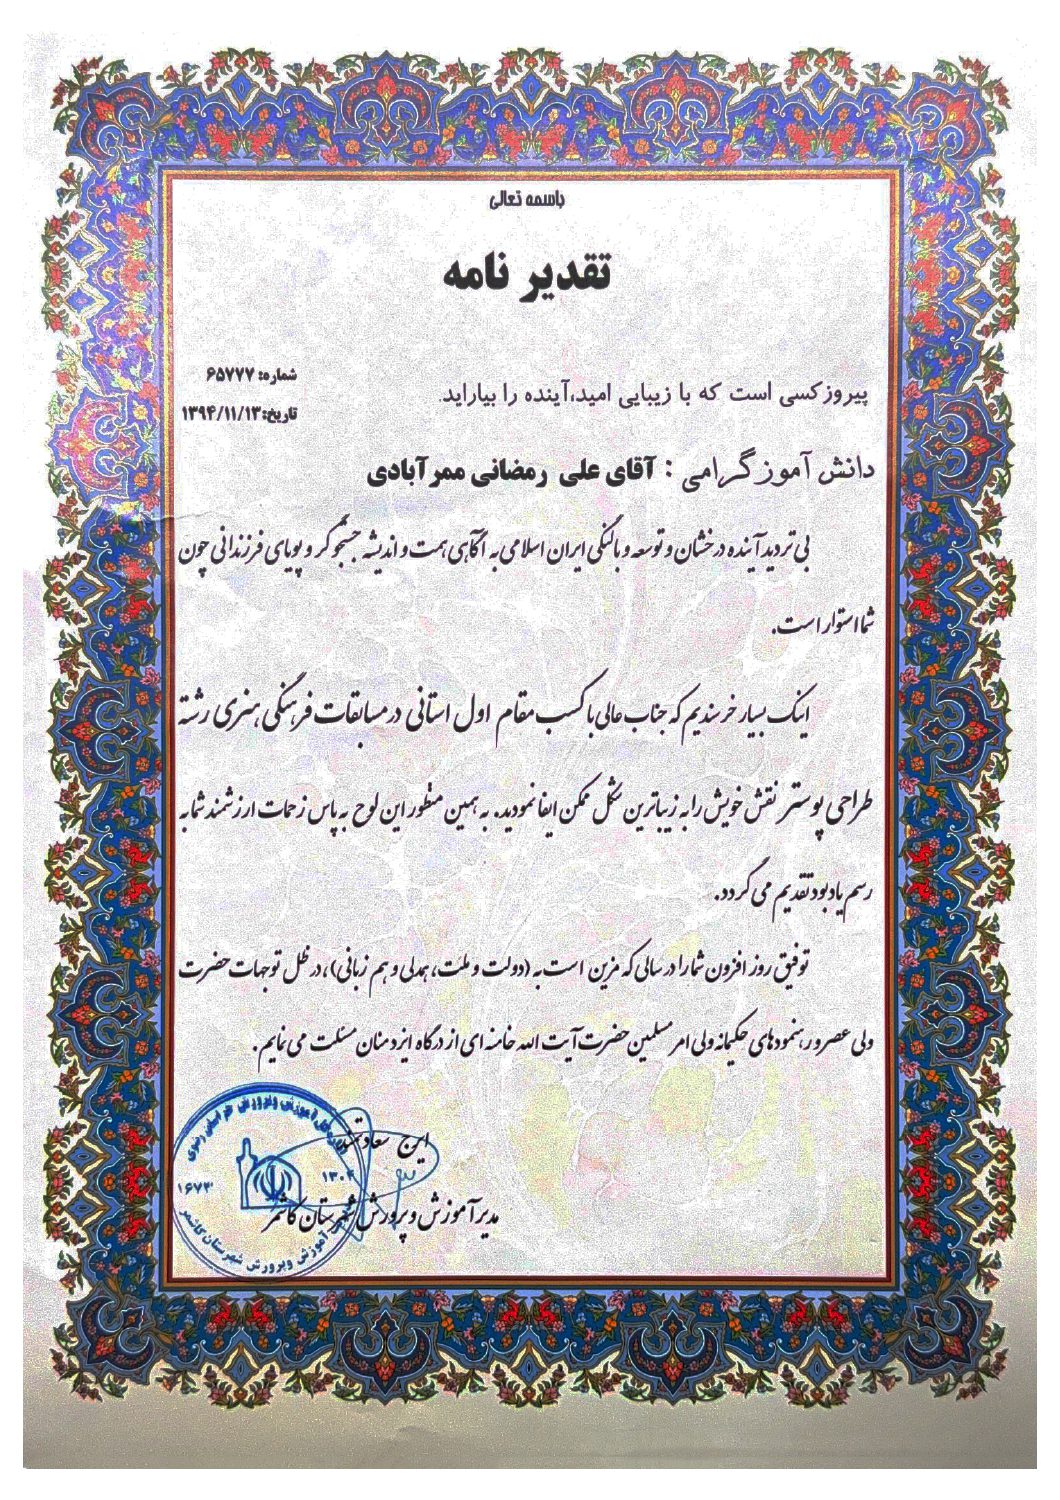 باسمه تعالی
تقدیر نامه
شماره: ۶۵۷۷۷
پیروز کسی است که با زیبایی امید،آینده را بیاراید.
تاریخ:۱۳۹۴/۱۱/۱۳
دانش آموز گرامی : آقای علی رمضانی ممرآبادی
بی تردید آینده درخشان و توسعه و بالندگی ایران اسلامی به آگاهی همت و اندیشه جستجوگر و پویای فرزندانی چون
شما استوار است.
اینک بسیار خرسندیم که جناب عالی با کسب مقام اول استانی در مسابقات فرهنگی هنری رشته
طراحی پوستر نقش خویش را به زیباترین شکل ممکن ایفا نمودید. به همین منظور این لوح به پاس زحمات ارزشمند شما به
رسم یادبود تقدیم می گردد.
توفیق روز افزون شما را در سالی که مزین است به (دولت و ملت، همدلی و هم زبانی)، در ظل توجهات حضرت
ولی عصر و رهنمودهای حکیمانه ولی امر مسلمین حضرت آیت الله خامنه ای از درگاه ایزد منان مسئلت می نمایم.
ایرج سعادتمند
مدیر آموزش و پرورش شهرستان کاشمر
آموزش وپرورش خراسان رضوی
۱۳۰۴
۱۶۷۳
آموزش وپرورش شهرستان کاشمر